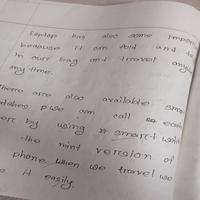 Laptop has also some
because it can fold and to
in our bag and travel
any time.
there are also available smar
we can call each
by using smart watch
the mint version of
phone, when we travel we
it easily.